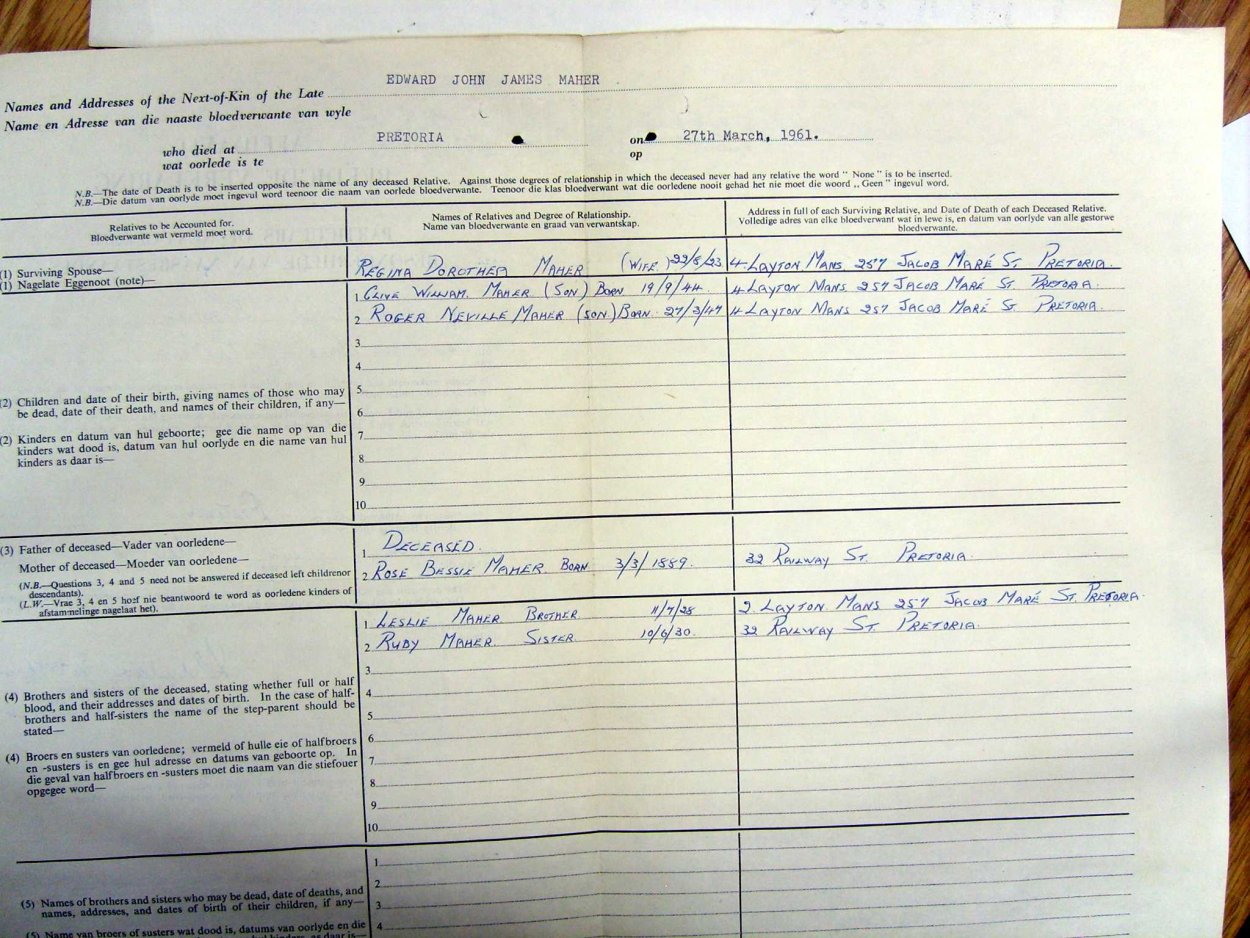 EDWARD JOHN JAMES MAHER
Names and Addresses of the Next-of-Kin of the Late
Name en Adresse van die naaste bloedverwante van wyle
who died at PRETORIA on 27th March, 1961.
wat oorlede is te op
N.B.—The date of Death is to be inserted opposite the name of any deceased Relative. Against those degrees of relationship in which the deceased never had any relative the word "None" is to be inserted.
N.B.—Die datum van oorlyde moet ingevul word teenoor die naam van oorlede bloedverwante. Teenoor die klas bloedverwant wat die oorledene nooit gehad het nie moet die woord „Geen" ingevul word.
Relatives to be Accounted for.
Bloedverwante wat vermeld moet word.
Names of Relatives and Degree of Relationship.
Name van bloedverwante en graad van verwantskap.
Address in full of each Surviving Relative, and Date of Death of each Deceased Relative.
Volledige adres van elke bloedverwant wat in lewe is, en datum van oorlyde van alle gestorwe
bloedverwante.
(1) Surviving Spouse—
(1) Nagelate Eggenoot (note)—
REGINA DOROTHEA MAHER (WIFE) 22/8/23 4 LAYTON MANS 257 JACOB MARÉ ST PRETORIA.
1 CLIVE WILLIAM. MAHER (SON) BORN 19/9/44. 4 LAYTON MANS 257 JACOB MARÉ ST PRETORIA.
2 ROGER NEVILLE MAHER (SON) BORN 27/3/47 4 LAYTON MANS 257 JACOB MARÉ ST PRETORIA.
3
4
5
6
7
8
9
10
(2) Children and date of their birth, giving names of those who may
be dead, date of their death, and names of their children, if any—
(2) Kinders en datum van hul geboorte; gee die name op van die
kinders wat dood is, datum van hul oorlyde en die name van hul
kinders as daar is—
(3) Father of deceased—Vader van oorledene—
Mother of deceased—Moeder van oorledene—
(N.B.—Questions 3, 4 and 5 need not be answered if deceased left childrenor
descendants).
(L.W.—Vrae 3, 4 en 5 hoef nie beantwoord te word as oorledene kinders of
afstammelinge nagelaat het).
1 DECEASED.
2 ROSE BESSIE MAHER BORN 3/3/1889. 32 RAILWAY ST. PRETORIA.
1 LESLIE MAHER BROTHER 11/7/28 2 LAYTON MANS 257 JACOB MARÉ ST. PRETORIA.
2 RUBY MAHER. SISTER. 10/6/30. 32 RAILWAY ST. PRETORIA.
3
4
5
6
7
8
9
10
(4) Brothers and sisters of the deceased, stating whether full or half
blood, and their addresses and dates of birth. In the case of half-
brothers and half-sisters the name of the step-parent should be
stated—
(4) Broers en susters van oorledene; vermeld of hulle eie of halfbroers
en -susters is en gee hul adresse en datums van geboorte op. In
die geval van halfbroers en -susters moet die naam van die stiefouer
opgegee word—
1
2
3
4
(5) Names of brothers and sisters who may be dead, date of deaths, and
names, addresses, and dates of birth of their children, if any—
(5) Name van broers of susters wat dood is, datums van oorlyde en die